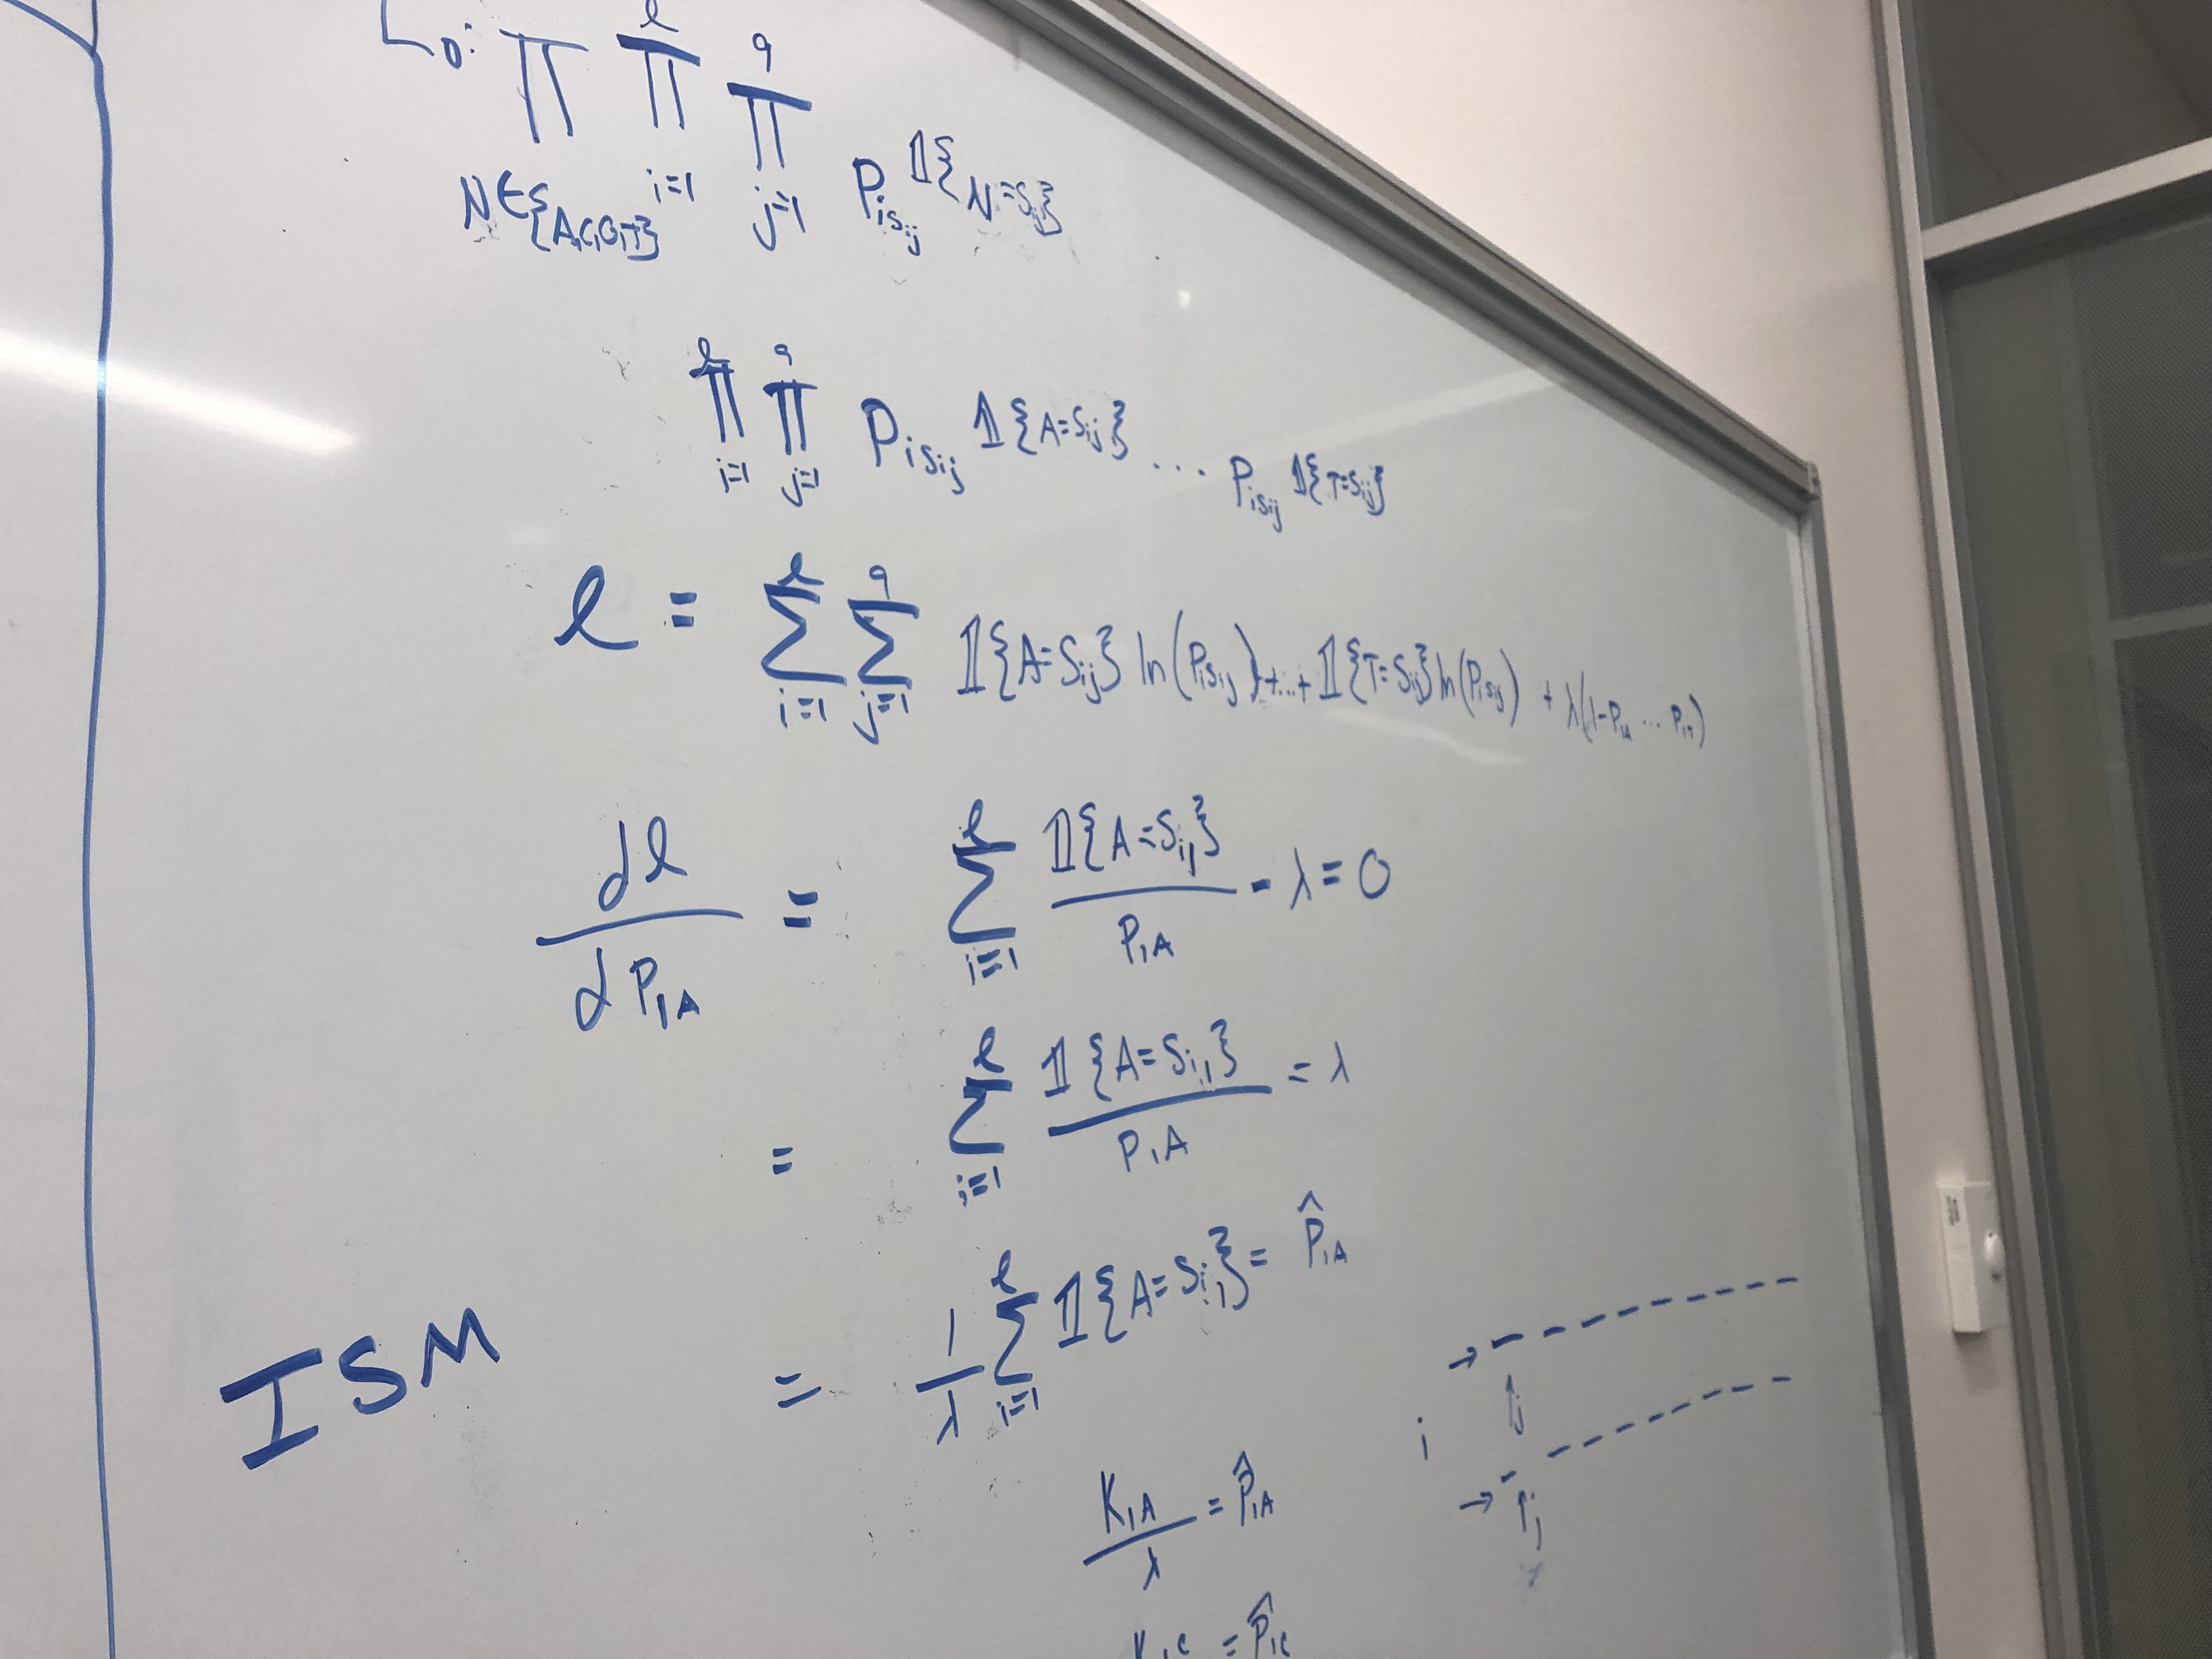 L₀: ∏_{N∈{A,C,G,T}} ∏_{i=1}^{l} ∏_{j=1}^{9} P_{iS_{ij}}^{𝟙{N=S_{ij}}}
∏_{i=1}^{l} ∏_{j=1}^{9} P_{iS_{ij}}^{𝟙{A=S_{ij}}} ... P_{iS_{ij}}^{𝟙{T=S_{ij}}}
ℓ = ∑_{i=1}^{l} ∑_{j=1}^{9} 𝟙{A=S_{ij}} ln(P_{iS_{ij}}) +...+ 𝟙{T=S_{ij}} ln(P_{iS_{ij}}) + λ(1-P_{1A} ... P_{1T})
dℓ/dP_{1A} = ∑_{i=1}^{l} 𝟙{A=S_{i1}}/P_{1A} - λ = 0
= ∑_{i=1}^{l} 𝟙{A=S_{i1}}/P_{1A} = λ
ISM = 1/λ ∑_{i=1}^{l} 𝟙{A=S_{i1}} = P̂_{1A}
→
↑j
i
K_{1A}/λ = P̂_{1A}
→
↑j
K_{1C} = P̂_{1C}